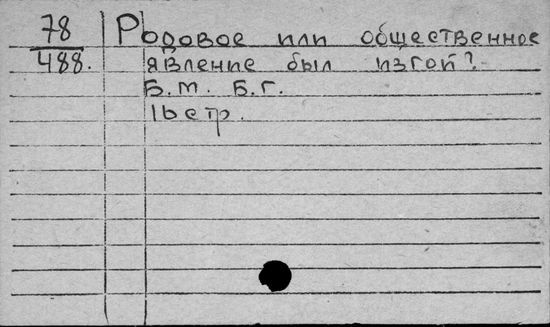 78 Родовое или общественное
488. явление был изгой?
Б.м. Б.г.
16 стр.